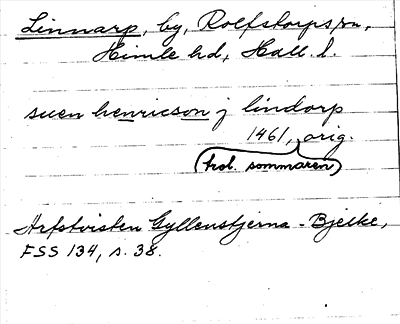 Linnarp, by, Rolfstorps sn,
Himle hd, Hall. l.
suen henricson j lindorp
1461, orig.
(trol. sommaren)
Arfstvisten Gyllenstjerna - Bjelke,
FSS 134, s. 38.